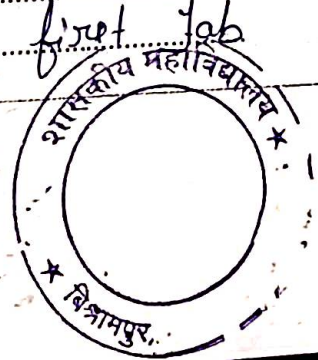 first Job
शासकीय महाविद्यालय
बिश्रामपुर